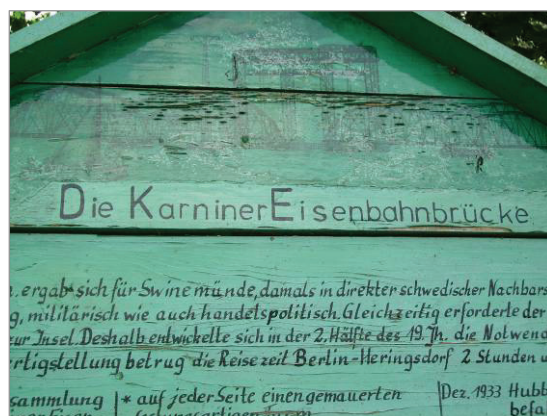 Die Karniner Eisenbahnbrücke
ergab sich für Swinemünde, damals in direkter schwedischer
militärisch wie auch handelspolitisch. Gleichzeitig erforderte der
zur Insel. Deshalb entwickelte sich in der 2. Hälfte des 19. Jh. die
betrug die Reisezeit Berlin-Heringsdorf 2 Stunden
* auf jeder Seite einen gemauerten
Dez. 1933